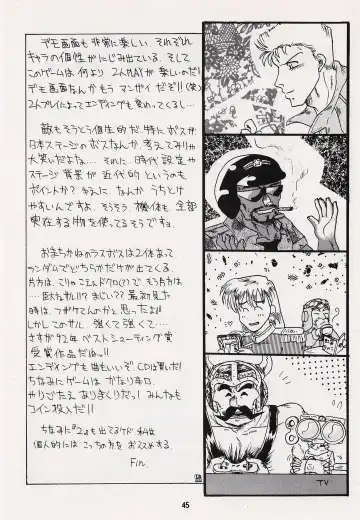 デモ画面も非常に楽しい、それぞれ
キャラの個性がにじみ出ている。そして
このゲームは何より2人PLAYが楽しいのだ!
デモ画面なんかもうマンザイだ!!(笑)
2人プレイによってエンディングも変わってくるし…
敵もそうとう個性的だ。特にボスが。
日本ステージのボスなんか、考えてみりゃ
大笑いだよな…。それに、時代設定や
ステージ背景が近代的というのも
ポイントか?キミに、なんかうちとけ
やすいんですよ。そうそう、機体も、全部
実在する物を使ってるそうですョ。
おまちかねのラスボスは2体あって、
ランダムでどちらかだけが出てくる。
片方は、こりゃコミュドクロ(?)で、もう片方は
……巨大なサル!!まじい??最初見た
時は、フザケてんのかと思ったよ!!
しかしこのサル、強くて強くて……
さすが92年ベストシューティング賞
受賞作品だねっ!!
エンディングも曲もいいぞCDは買いだ!
ちなみにゲームはかなり辛口。
やりごたえ、なりきりぐだっ!みんなも
コイン投入だ!!
ちなみに『2』も出てるケド、私は
個人的にはこっちの方をおススメする。
Fin.
TV
45